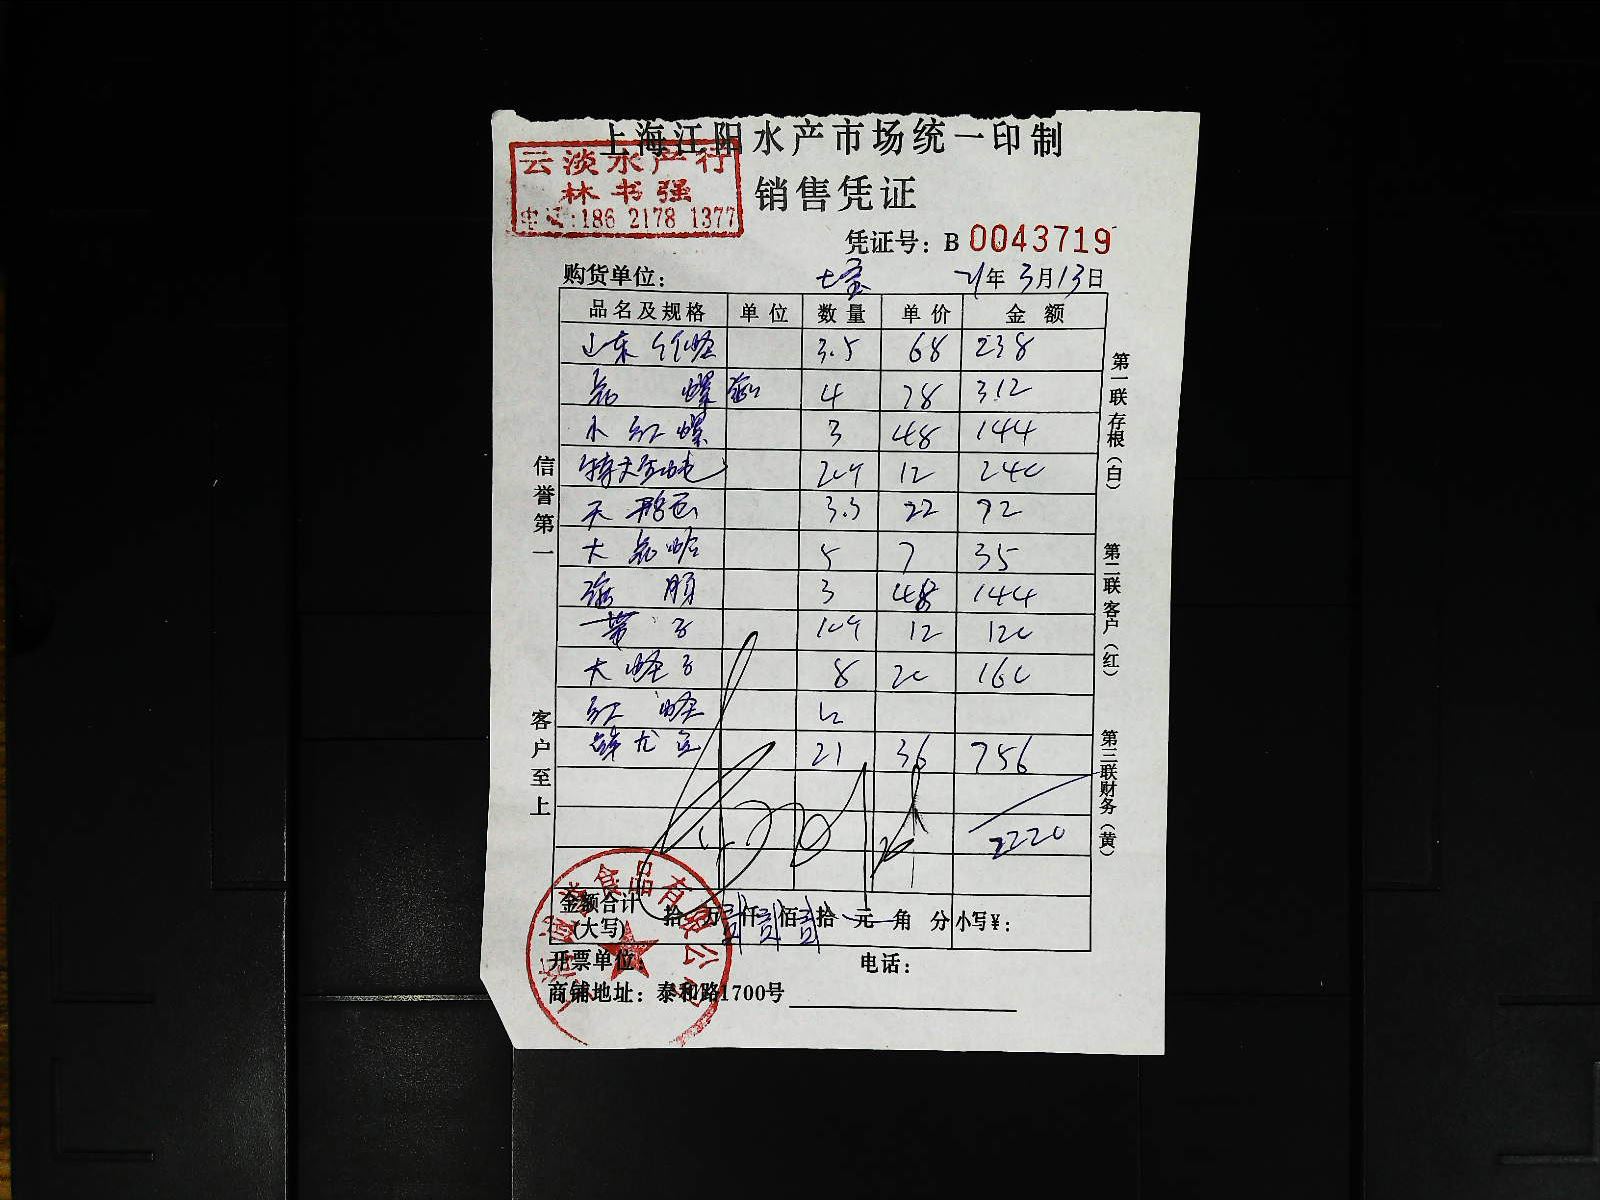 上海江阳水产市场统一印制
云淡水产行
林书强
电话:186 2178 1377
销售凭证
凭证号：B 0043719
购货单位： 七宝 21年3月13日
品名及规格 单位 数量 单价 金额
山东竹蛏 3.5 68 238
花螺 4 78 312
小红螺 3 48 144
特大 12 240
天鹅蛋 3.3 22 72
大花蛤 5 7 35
3 48 144
带子 12 120
大蛏子 8 20 160
红蛏
21 36 756
2220
金额合计(大写) 拾 万 贰仟 贰佰 贰拾 元 角 分 小写¥：
开票单位： 电话：
商铺地址：泰和路1700号
信誉第一
客户至上
第一联存根（白）
第二联客户（红）
第三联财务（黄）
食品有限公司